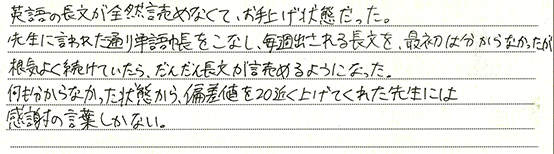 英語の長文が全然読めなくて、お手上げ状態だった。
先生に言われた通り単語帳をこなし、毎週出される長文を、最初は分からなかったが
根気よく続けていたら、だんだん長文が読めるようになった。
何も分からなかった状態から、偏差値を20近く上げてくれた先生には
感謝の言葉しかない。